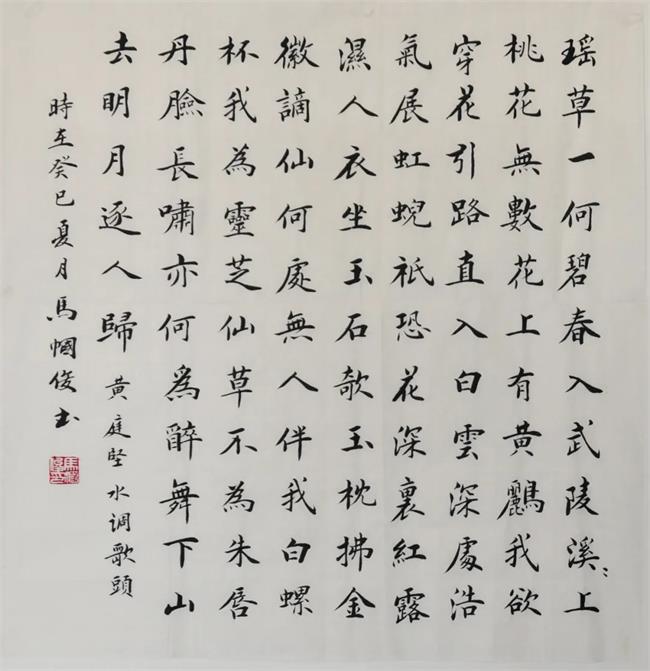 瑶草一何碧春入武陵溪〻上
桃花無數花上有黃鸝我欲
穿花引路直入白雲深處浩
氣展虹蜺祇恐花深裏紅露
濕人衣坐玉石欹玉枕拂金
徽謫仙何處無人伴我白螺
杯我為靈芝仙草不為朱唇
丹臉長嘯亦何爲醉舞下山
去明月逐人歸 黃庭堅水调歌頭
時在癸巳夏月馬幗俊书